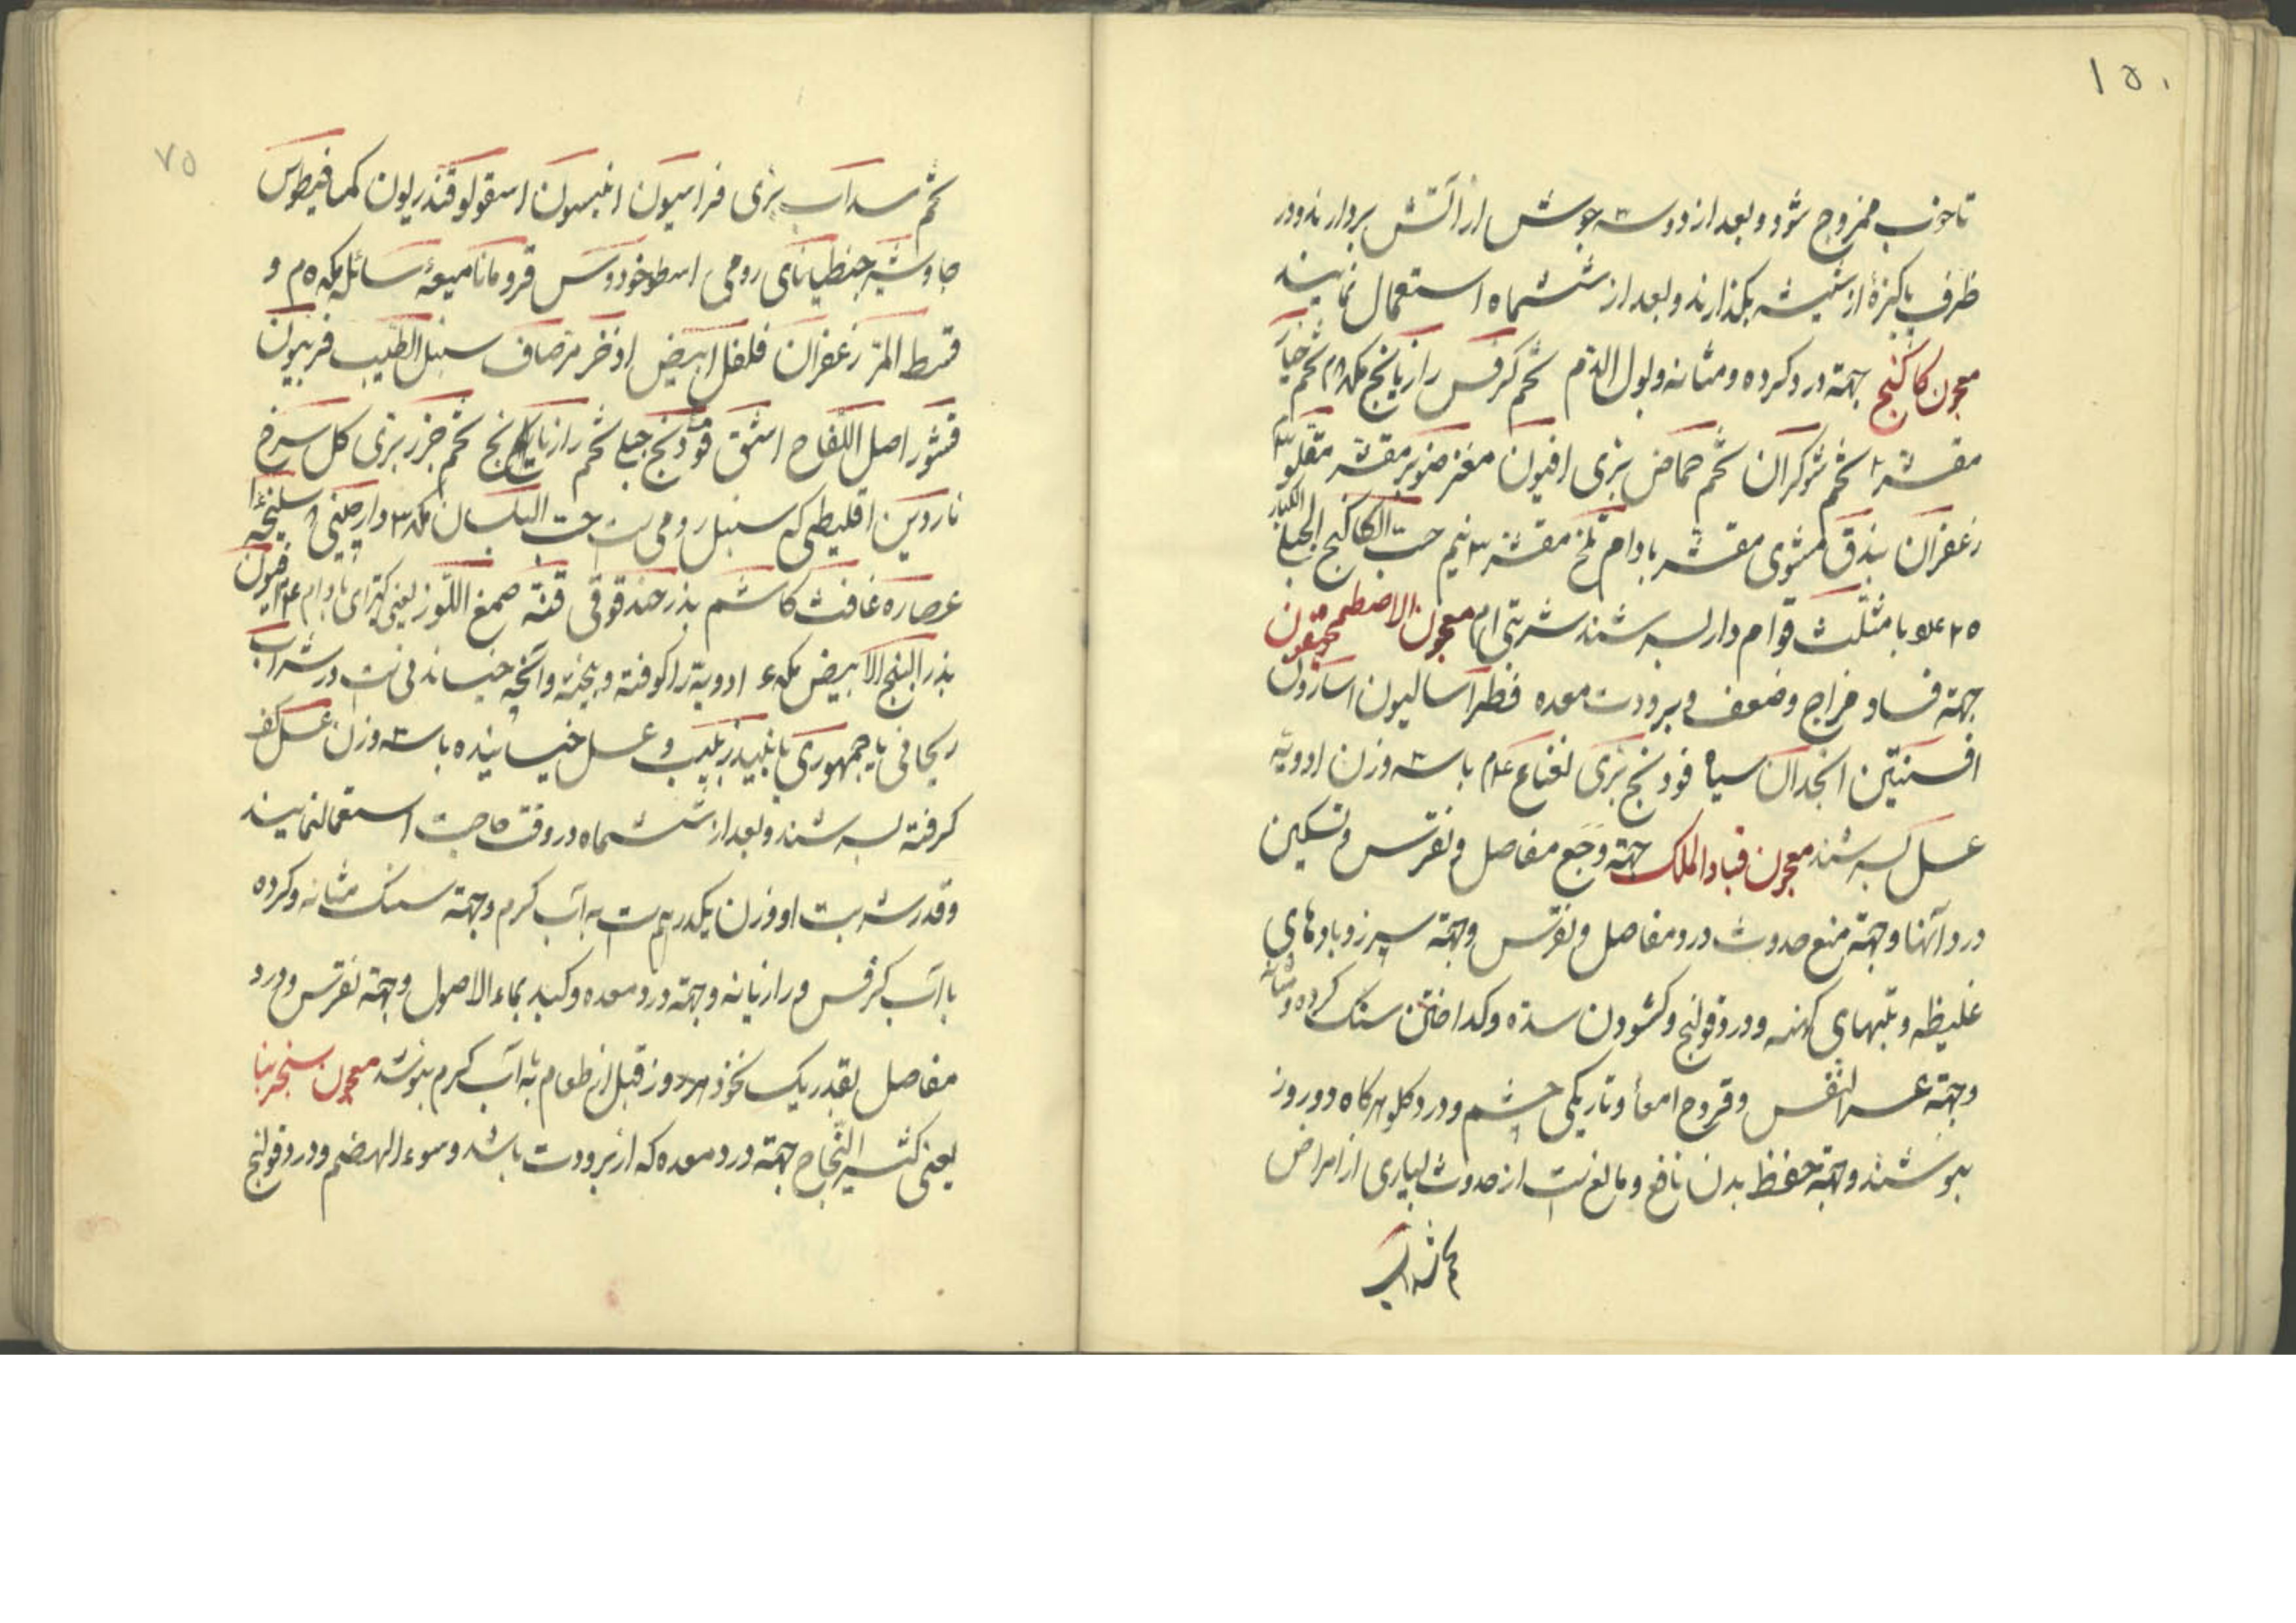 ۱۵۰
تا خوب ممزوج شود و بعد از دو سه جوش از آتش بردارند و در
ظرف پاکیزهٔ از شیشه بگذارند و بعد از ششماه استعمال نمایند
معجون کاکنج جهة درد کرده و مثانه و بول الدم تخم کرفس رازیانج تخم خیار
مقشر تخم شوکران تخم حماض بری افیون مغز صنوبر مقشر مقلو
زعفران بندق مشوی مقشر بادام تلخ مقشر ۳ نیم حب الکاکنج الجبلی الکبار
۲۵ عدد با مثلث قوام دار بسرشند شربتی ۱م معجون الاصطمحیقون
جهة فساد مزاج و ضعف و برودت معده فطراسالیون اسارون
افسنتین انجدان سیاه فودنج بری نعناع ۴م با سه وزن ادویه
عسل بسرشند معجون قباد الملک جهة وجع مفاصل و نقرس و تسکین
درد آنها و جهة منع حدوث درد مفاصل و نقرس و جهة سپرز و بادهای
غلیظه و تبهای کهنه و درد قولنج و کشودن سده و کداختن سنک کرده و مثانه
و جهة عسر النفس و قروح امعا و تاریکی چشم و درد کلو هر کاه دو روز
بنوشند و جهة حفظ بدن نافع و مانع است از حدوث بسیاری از امراض
تخم سداب
۷۵
تخم سداب بری فراسیون انیسون اسقولوقندریون کمافیطوس
جاوشیر جنطیانای رومی اسطوخودوس قرومانا میعهٔ سائله مکد ۵م و
قسط المر زعفران فلفل ابیض اذخر مر صاف سنبل الطیب فربیون
قشور اصل اللفاح اشق فودنج جبلی تخم رازیانج تخم جزر بری کل سرخ
ناردین اقلیطی که سنبل رومی است حب البلسان مکد ۳ دارچینی سلیخه
عصاره غافث کاشم بذر حندقوقی قنه صمغ اللوز یعنی کتیرای بادام افیون
بذر البنج الابیض مکد ادویه را کوفته و بیخته و آنچه خیساندنی است در شراب
ریحانی یا جمهوری یا نبیذ زبیب و عسل خیسانیده با سه وزن عسل کف
کرفته بسرشند و بعد از ششماه در وقت حاجت استعمال نمایند
و قدر شربت او وزن یکدرهم است به آب کرم و جهة سنک مثانه و کرده
با آب کرفس و رازیانه و جهة درد معده و کبد بماء الاصول و جهة نقرس و درد
مفاصل بقدر یک نخود هر روز قبل از طعام به آب کرم بنوشند معجون سنجرینا
یعنی کثیر النجاح جهة درد معده که از برودت باشد و سوء الهضم و درد قولنج